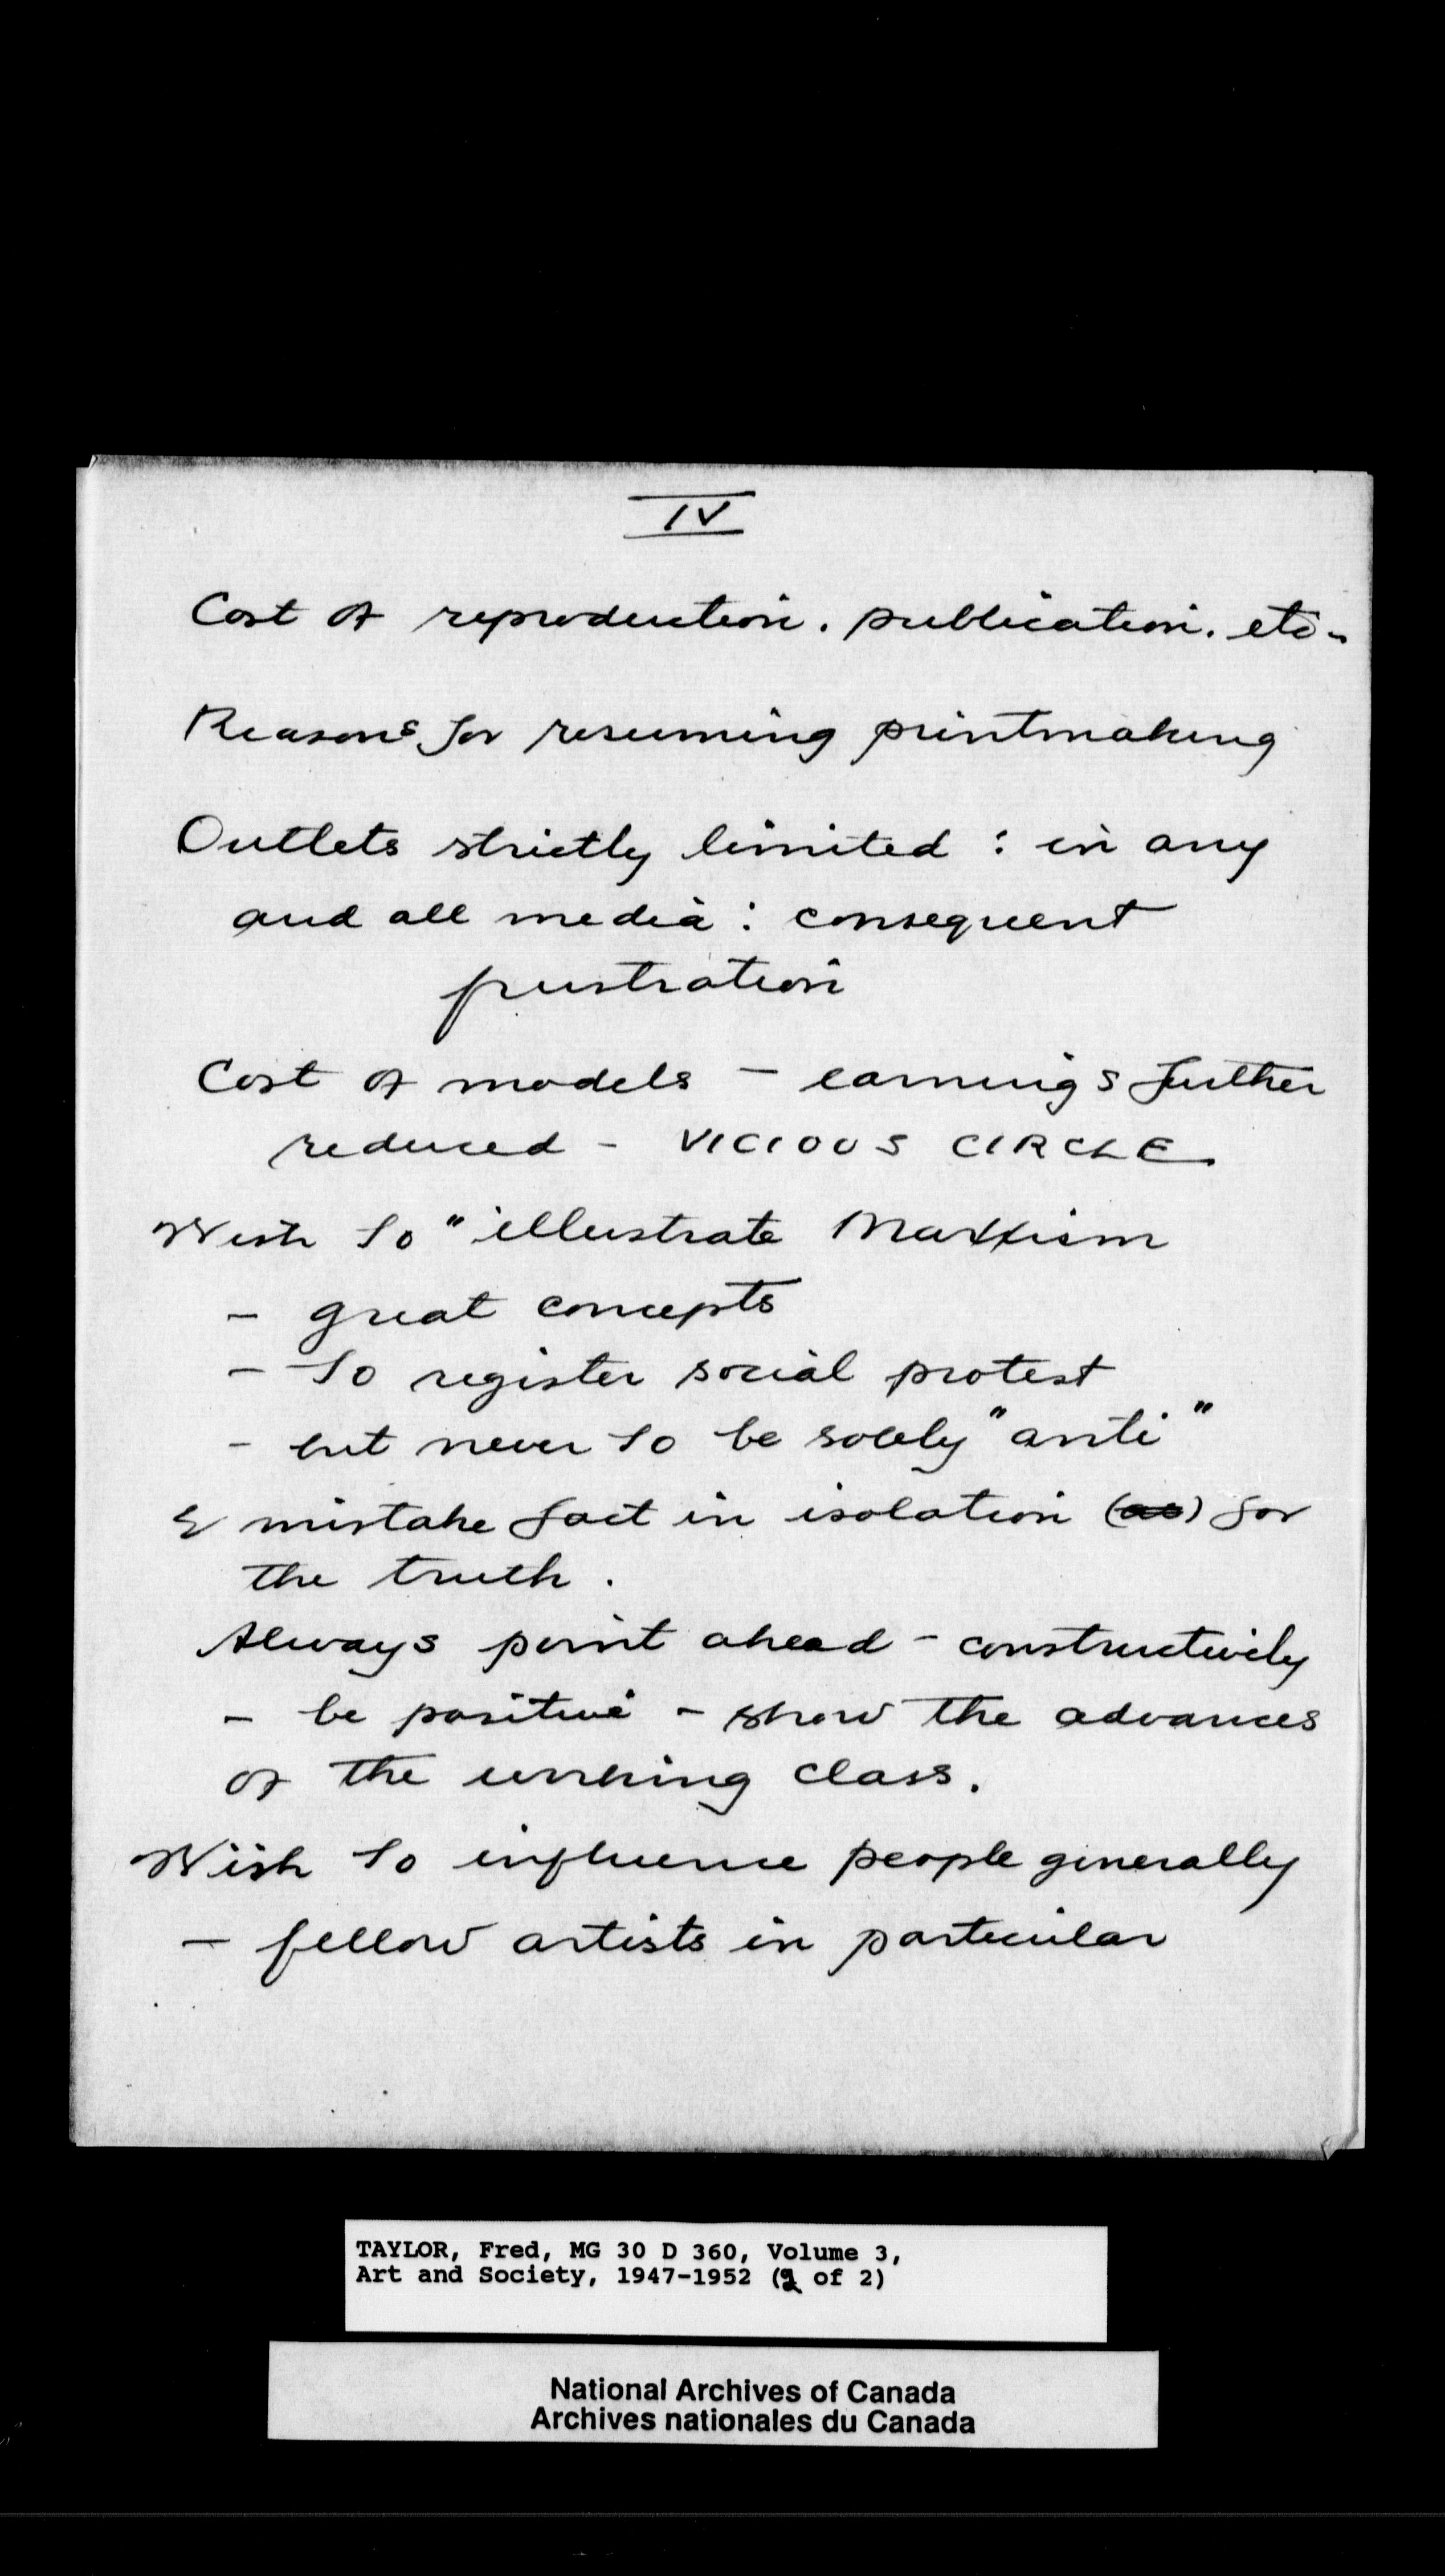 IV
Cost of reproduction. publication. etc.
Reasons for resuming printmaking
Outlets strictly limited : in any
and all media : consequent
frustration
Cost of models - earnings further
reduced - VICIOUS CIRCLE
Wish to "illustrate Marxism
- great concepts
- to register social protest
- but never to be solely "anti"
& mistake fact in isolation (as) for
the truth.
Always point ahead - constructively
- be positive - show the advances
of the working class.
Wish to influence people generally
- fellow artists in particular
TAYLOR, Fred, MG 30 D 360, Volume 3,
Art and Society, 1947-1952 (2 of 2)
National Archives of Canada
Archives nationales du Canada